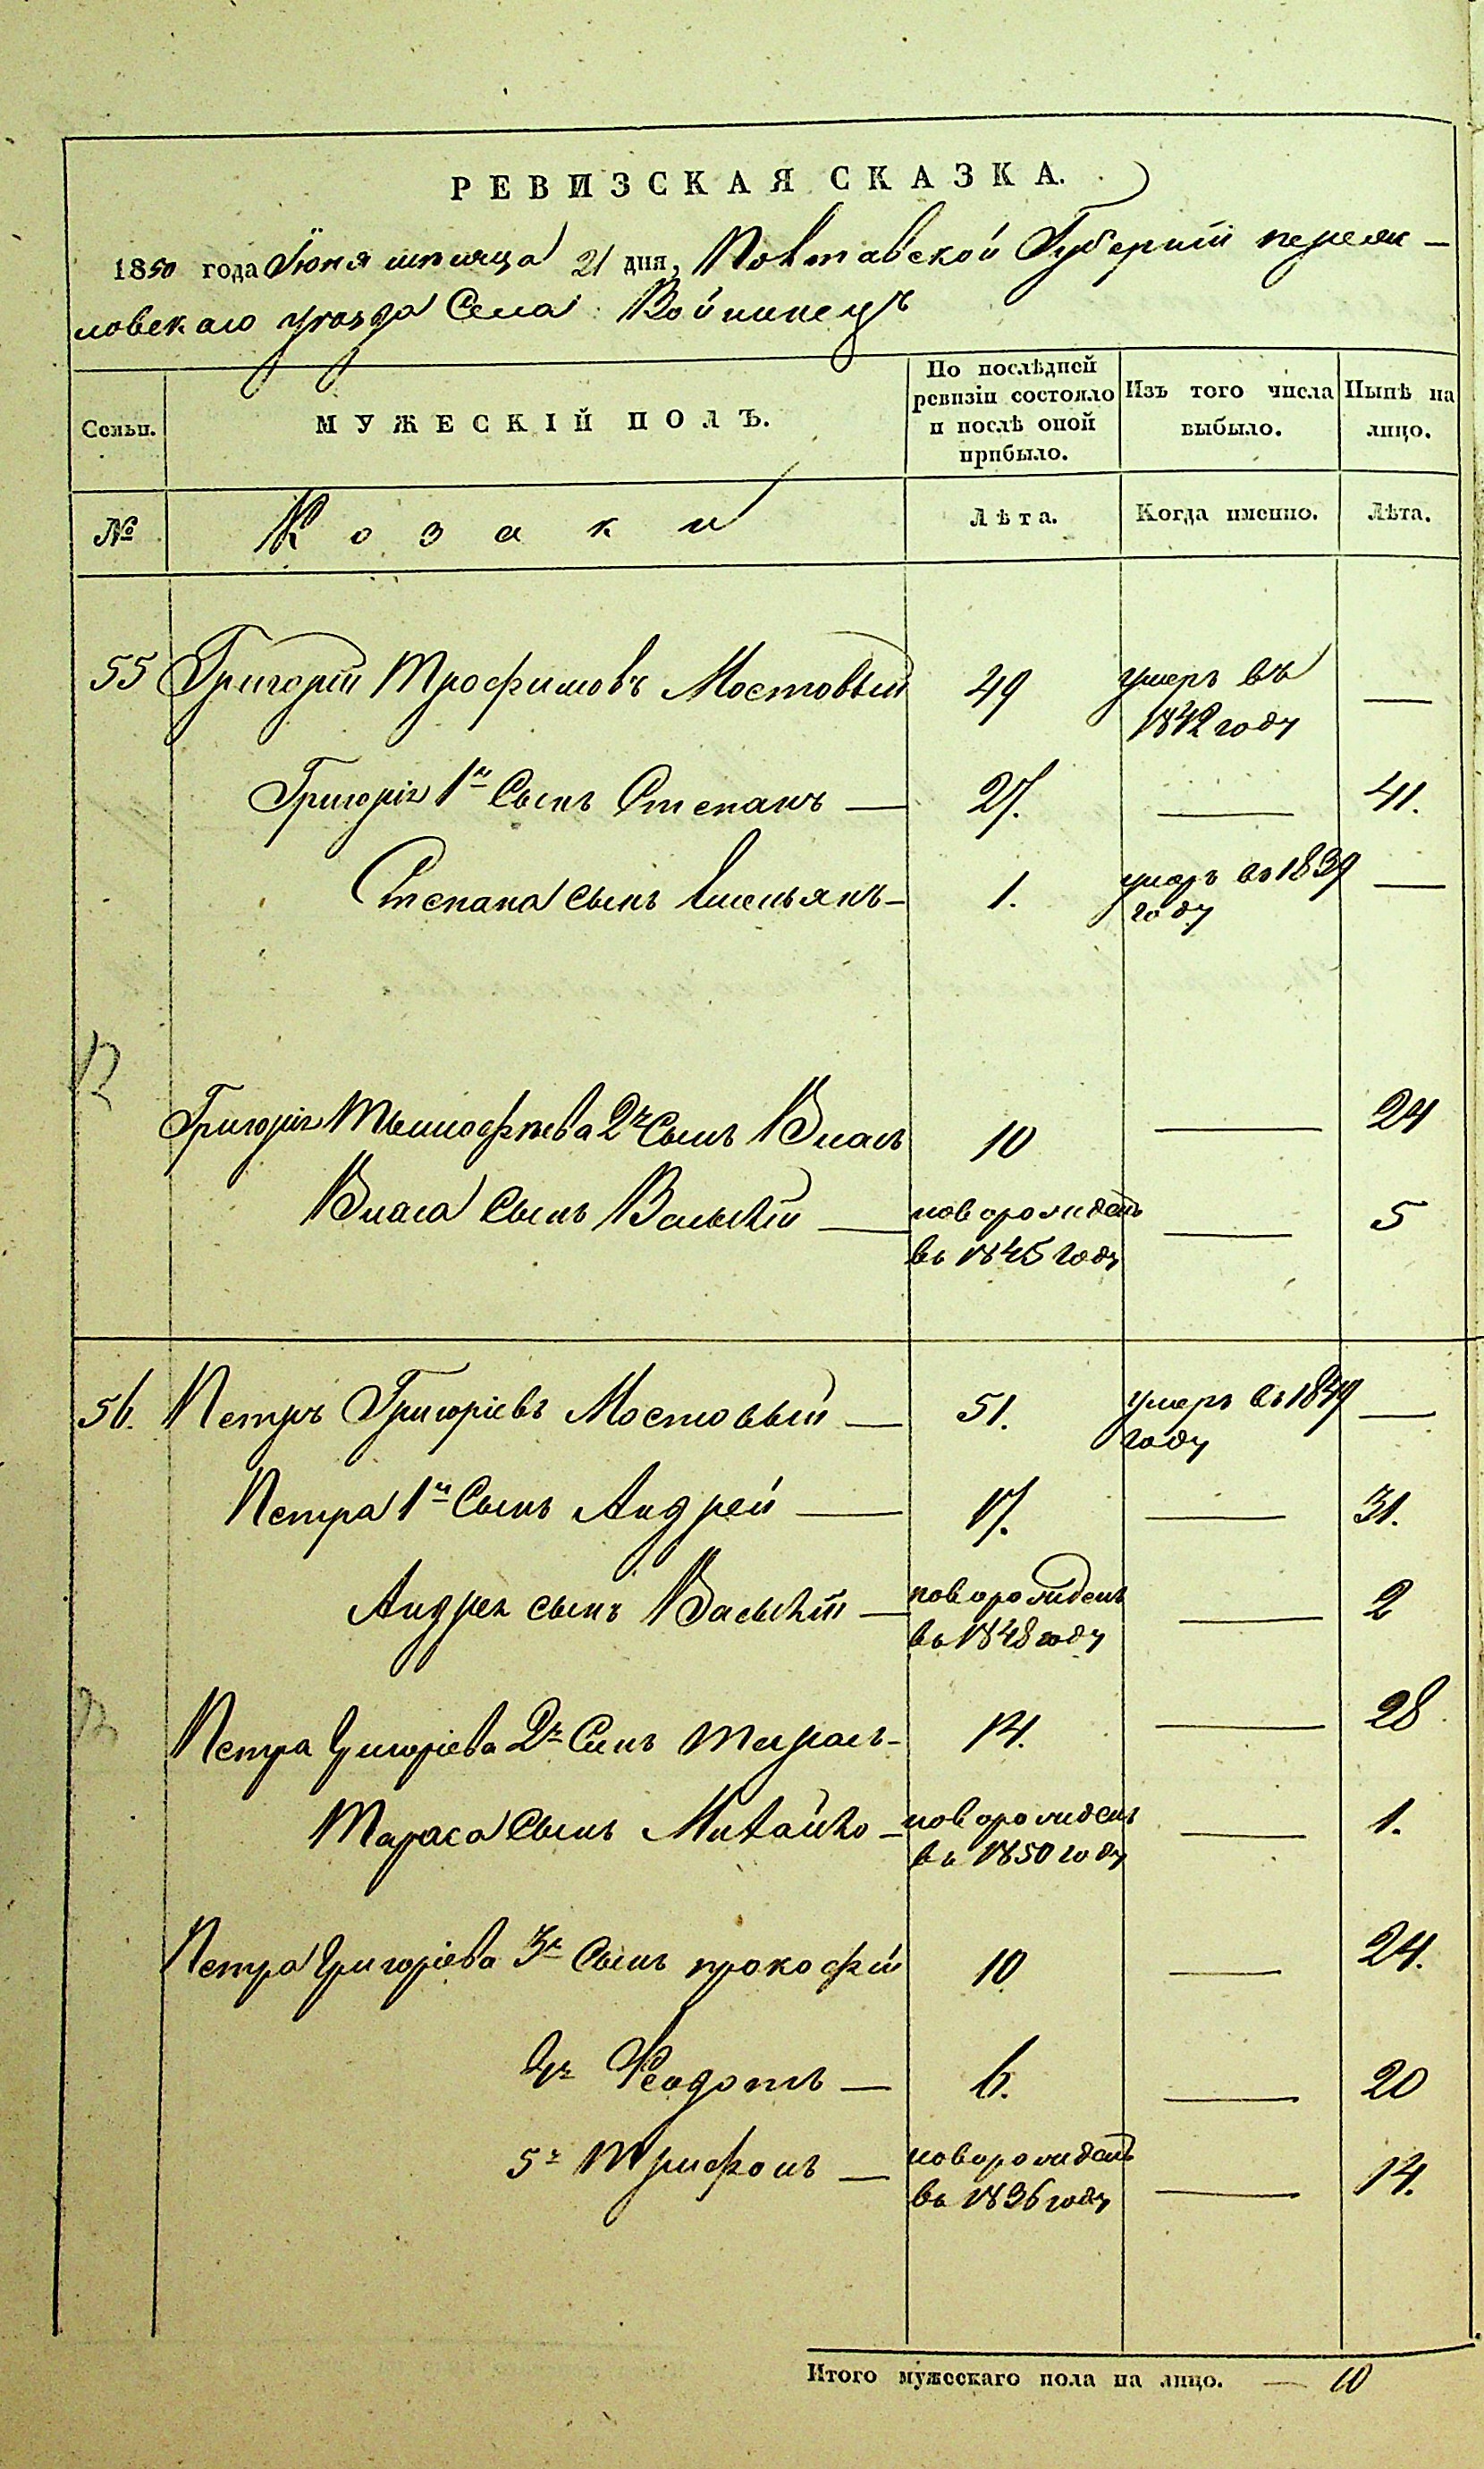 РЕВИЗСКАЯ СКАЗКА.
1850 года Іюня мѣсяца 21 дня, Полтавской Губерніи переяс-
ловскаго уѣзда Села Войнинецъ
Семьи.
МУЖЕСКІЙ ПОЛЪ.
По послѣдней ревизіи состояло и послѣ оной прибыло.
Изъ того числа выбыло.
Нынѣ на лицо.
№
Козаки
Лѣта.
Когда именно.
Лѣта.
55 Григорій Трофимовъ Мостовый 49 умеръ въ —
1842 году
Григорія 1й Сынъ Степанъ — 27. — 41.
Степана сынъ Емельянъ — 1. умеръ въ 1839 —
году
Григорія 2й Сынъ Власъ 10 — 24
Власа Сынъ Василій — новорожденъ — 5
въ 1845 году
56. Петръ Григоріевъ Мостовый — 51. умеръ въ 1849 —
году
Петра 1й Сынъ Андрей — 17. — 31.
Андрея сынъ Василій — новорожденъ — 2
въ 1848 году
Петра Григоріева 2й Сынъ Тарасъ — 14. — 28
Тараса Сынъ Михайло — новорожденъ — 1.
въ 1850 году
Петра Григоріева 3й Сынъ прокофій 10 — 24.
4й Феодотъ — 6. — 20
5й Трифонъ — новорожденъ — 14.
въ 1836 году
Итого мужескаго пола на лицо. — 10